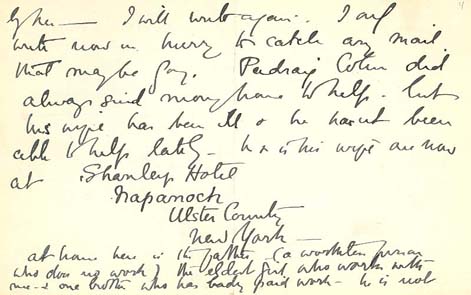 I will write again. I only
write now in hurry to catch any mail
that may be going. Padraig Colum did
always send money home to help - but
his wife has been ill & he hasnt been
able to help lately - he & his wife are now
at Shanley Hotel
Napanoch
Ulster County
New York -
at home here is the father (a worthless person
who does no work) the eldest girl, who works with
me - & one brother who has badly paid work - he is not